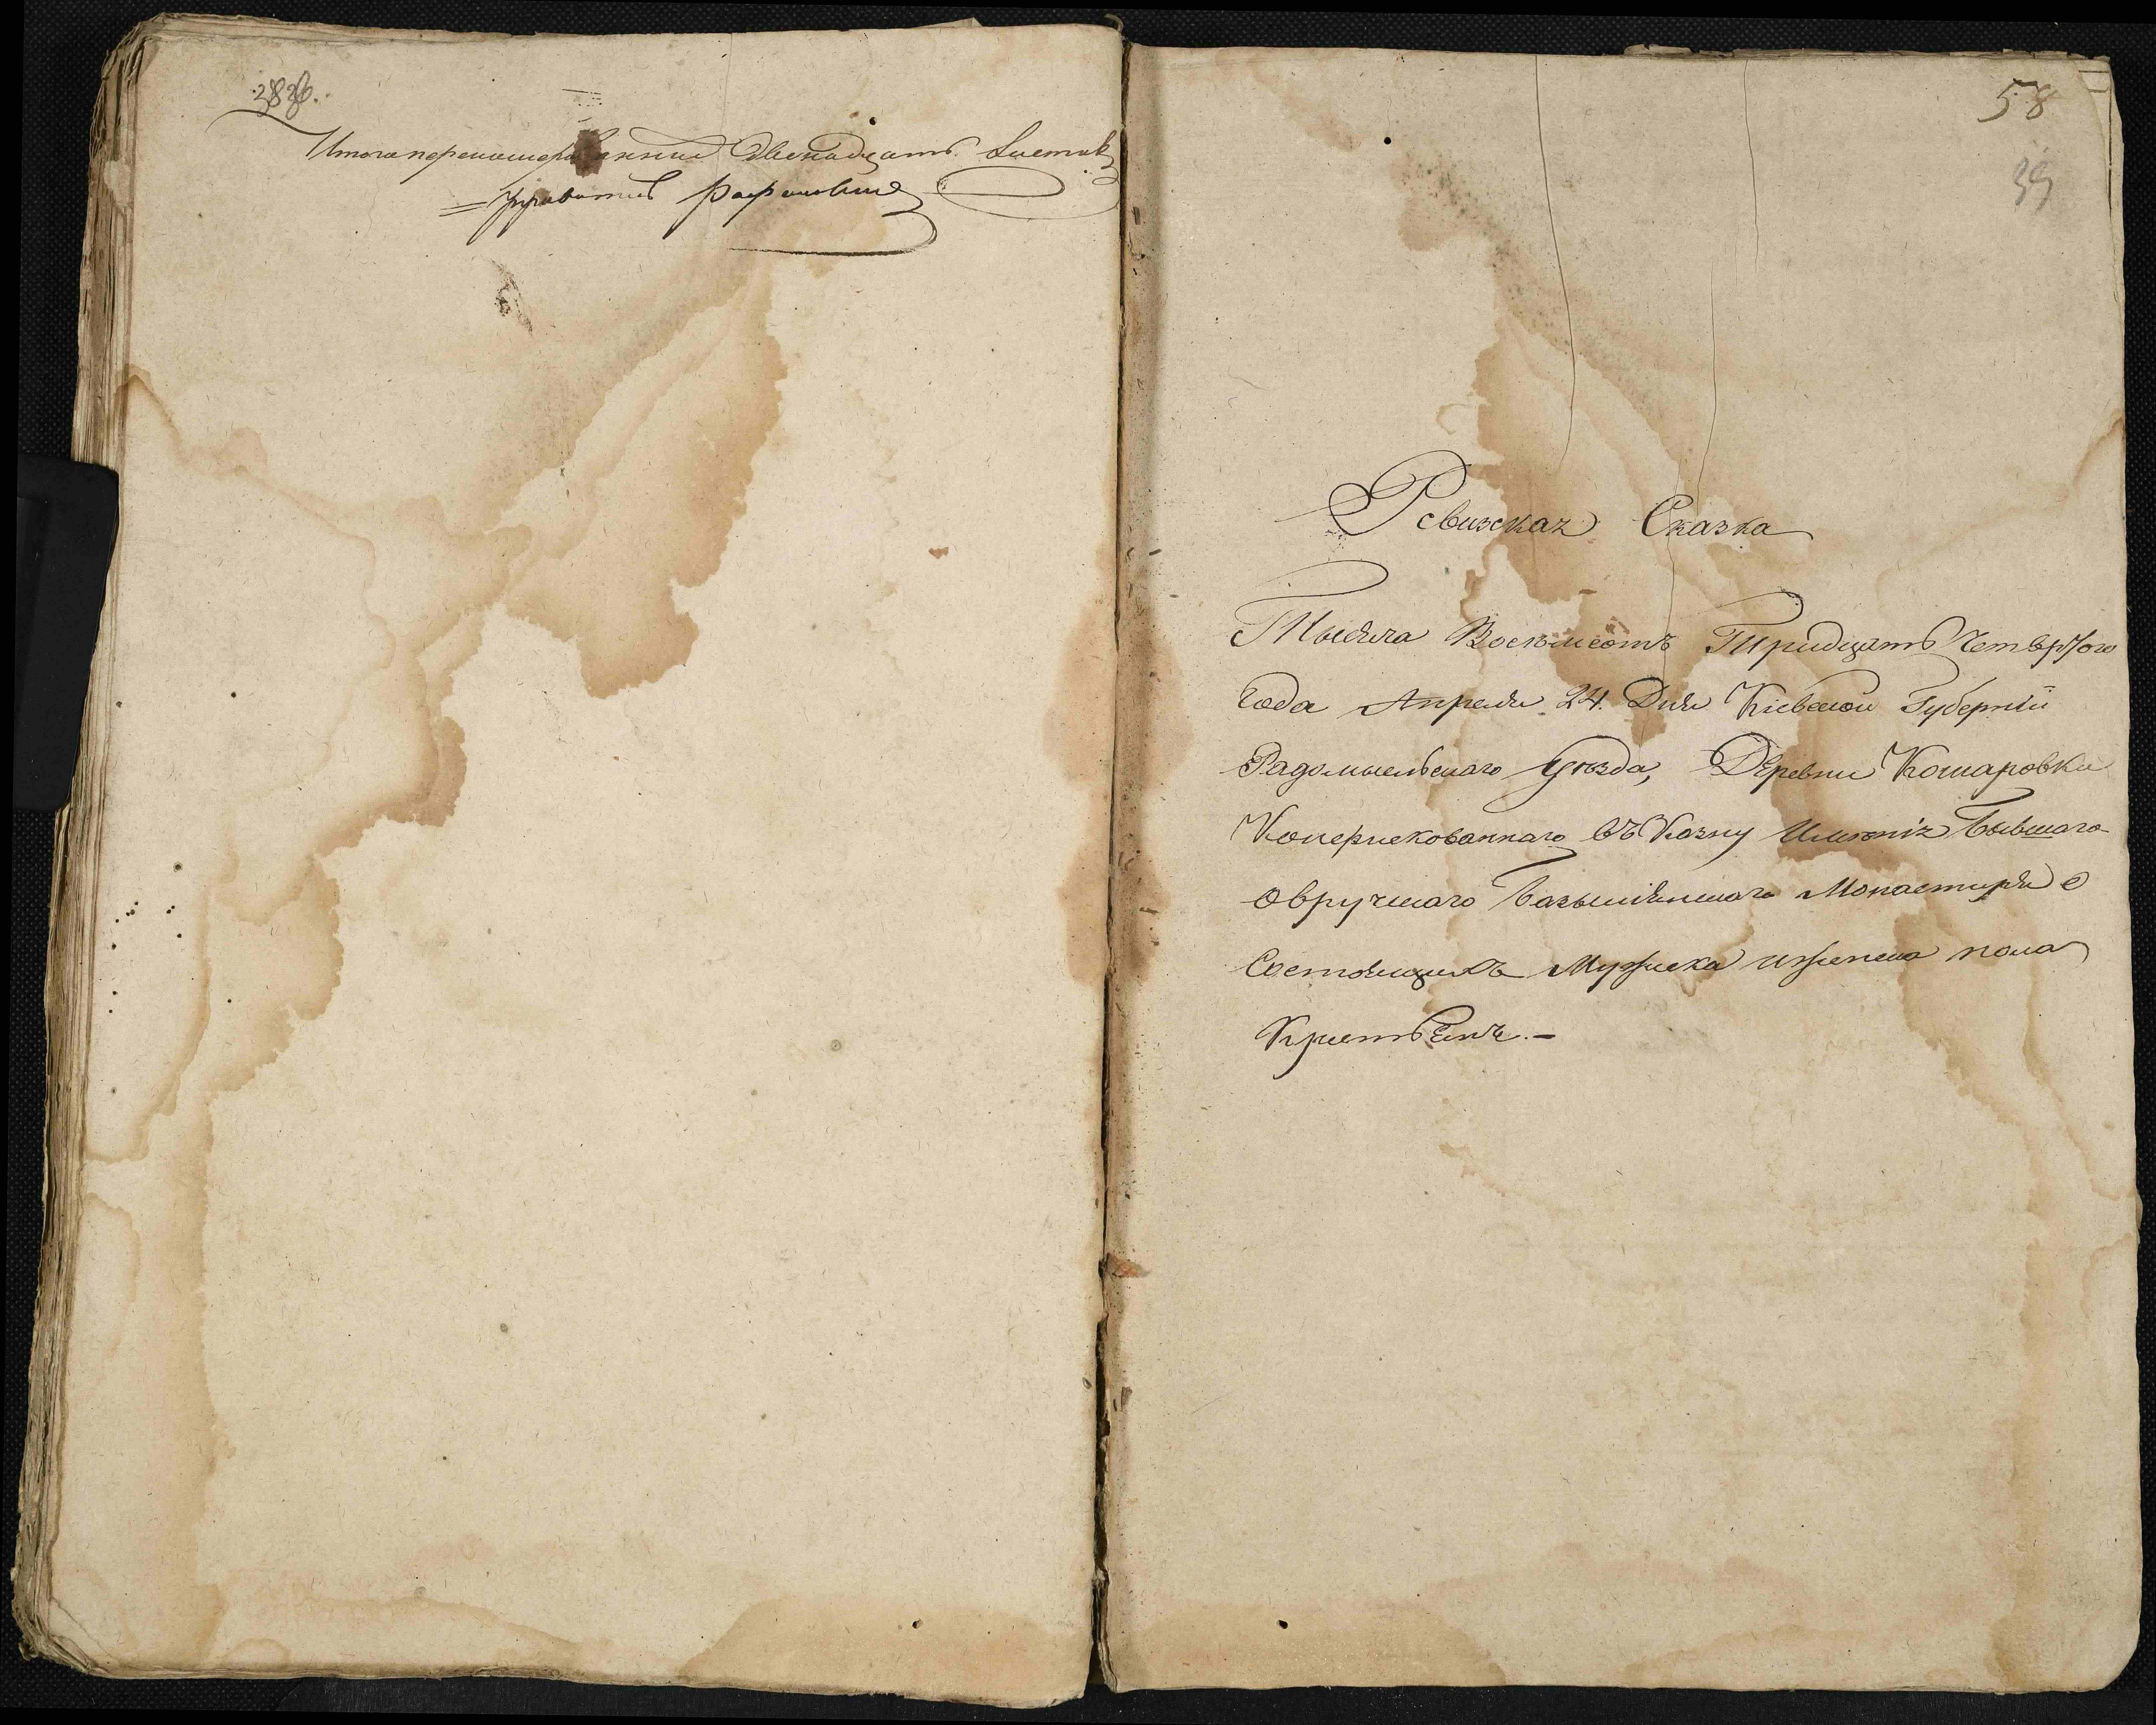 Итого перенумерованных двенадцать листов
58
39
Ревизская Сказка
Тысяча Восемсотъ Тридцать Четвертого
Года Апреля 24. Дня Кіевской Губерніи
Радомысльскаго Уѣзда, Деревни Кошаровки
Конфискованнаго въ Казну Имѣнія Бывшаго
Овручскаго Базыліянскаго Монастиря о
Состоящихъ Мужеска и женска пола
Крестьянъ.-